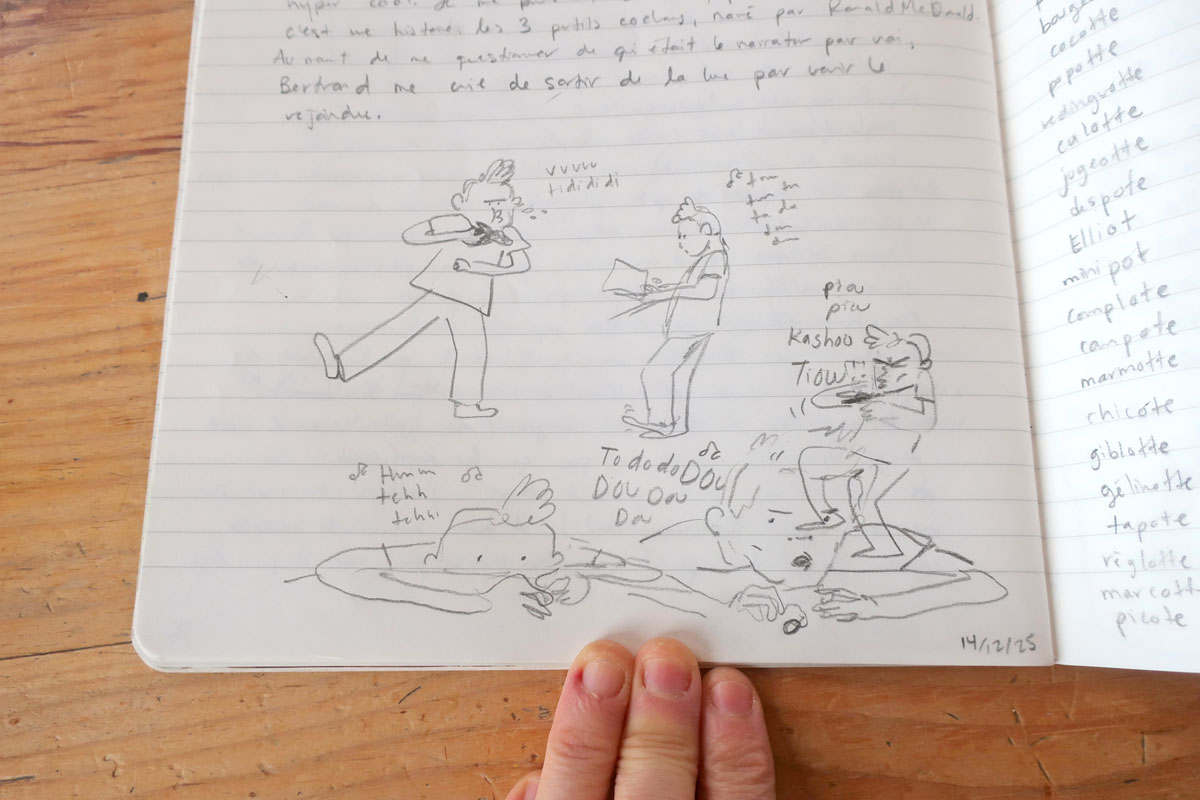 hyper cool. Je me
c'est une histoire, les 3 petits cochons, narré par Ronald McDonald.
Avant de me questionner de qui était le narrateur par voi,
Bertrand me crie de sortir de la lue par venir le
rejoindre.
vvvvv
tidididi
tam
ta da
dam
piou
piou
Kashoo
Tiow!!
Hmm
tchh
tchhi
To do do DOU
DOU DOU
DOU
14/12/25
cocotte
popotte
redingotte
culotte
jugeotte
despote
Elliot
mini pot
complote
compote
marmotte
chicote
giblotte
gélinotte
tapote
règlotte
marcott
picote